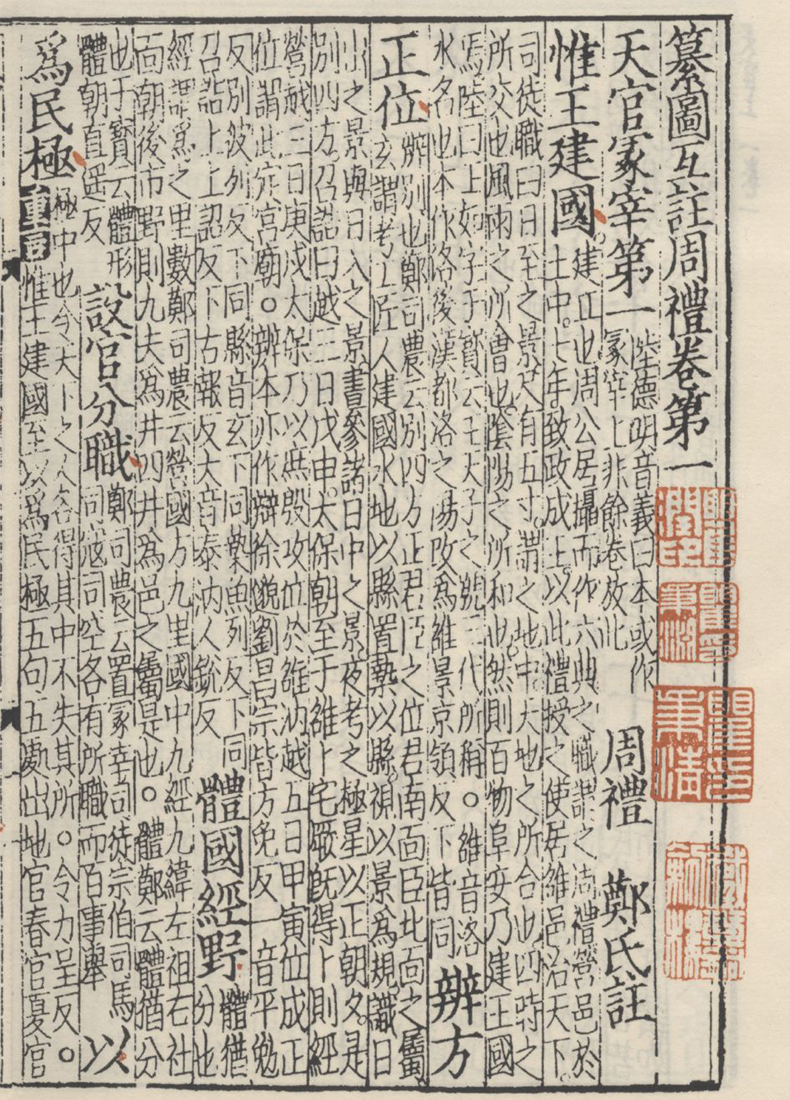 纂圖互註周禮卷第一
天官冢宰第一 陸德明音義曰本或作
冢宰上非餘卷放此 周禮 鄭氏註
惟王建國 建立也周公居攝而作六典之職謂之周禮營邑於
土中七年致政成王以此禮授之使居雒邑治天下
司徒職曰日至之景尺有五寸謂之地中天地之所合也四時之
所交也風雨之所會也陰陽之所和也然則百物阜安乃建王國
焉陸曰上如字于寶云王天子之號三代所稱。雒音洛
水名也本作洛後漢都洛之陽改爲雒景京領反下皆同 辨方
正位 辨別也鄭司農云別四方正君臣之位君南面臣北面之屬
玄謂考工匠人建國水地以縣置槷以縣視以景爲規識日
出之景與日入之景書參諸日中之景夜考之極星以正朝夕是
別四方召誥曰越三日戊申太保朝至于雒卜宅厥旣得卜則經
營越三日庚戌太保乃以庶殷攻位於雒汭越五日甲寅位成正
位謂此定宮廟。辨本亦作辯徐邈劉昌宗皆方免反一音平勉
反別彼列反下同縣音玄下同槷魚列反下同
召誥上上詔反下古報反大音泰汭人銳反 體國經野 體猶
分也
經謂爲之里數鄭司農云營國方九里國中九經九緯左祖右社
面朝後市野則九夫爲井四井爲邑之屬是也。體鄭云體猶分
也于寶云體形
體朝直遥反 設官分職 鄭司農云置冢宰司徒宗伯司馬
司寇司空各有所職而百事舉 以
爲民極 極中也令天下之人各得其中不失其所。令力呈反。
重言 惟王建國至以爲民極五句五處出地官春官夏官